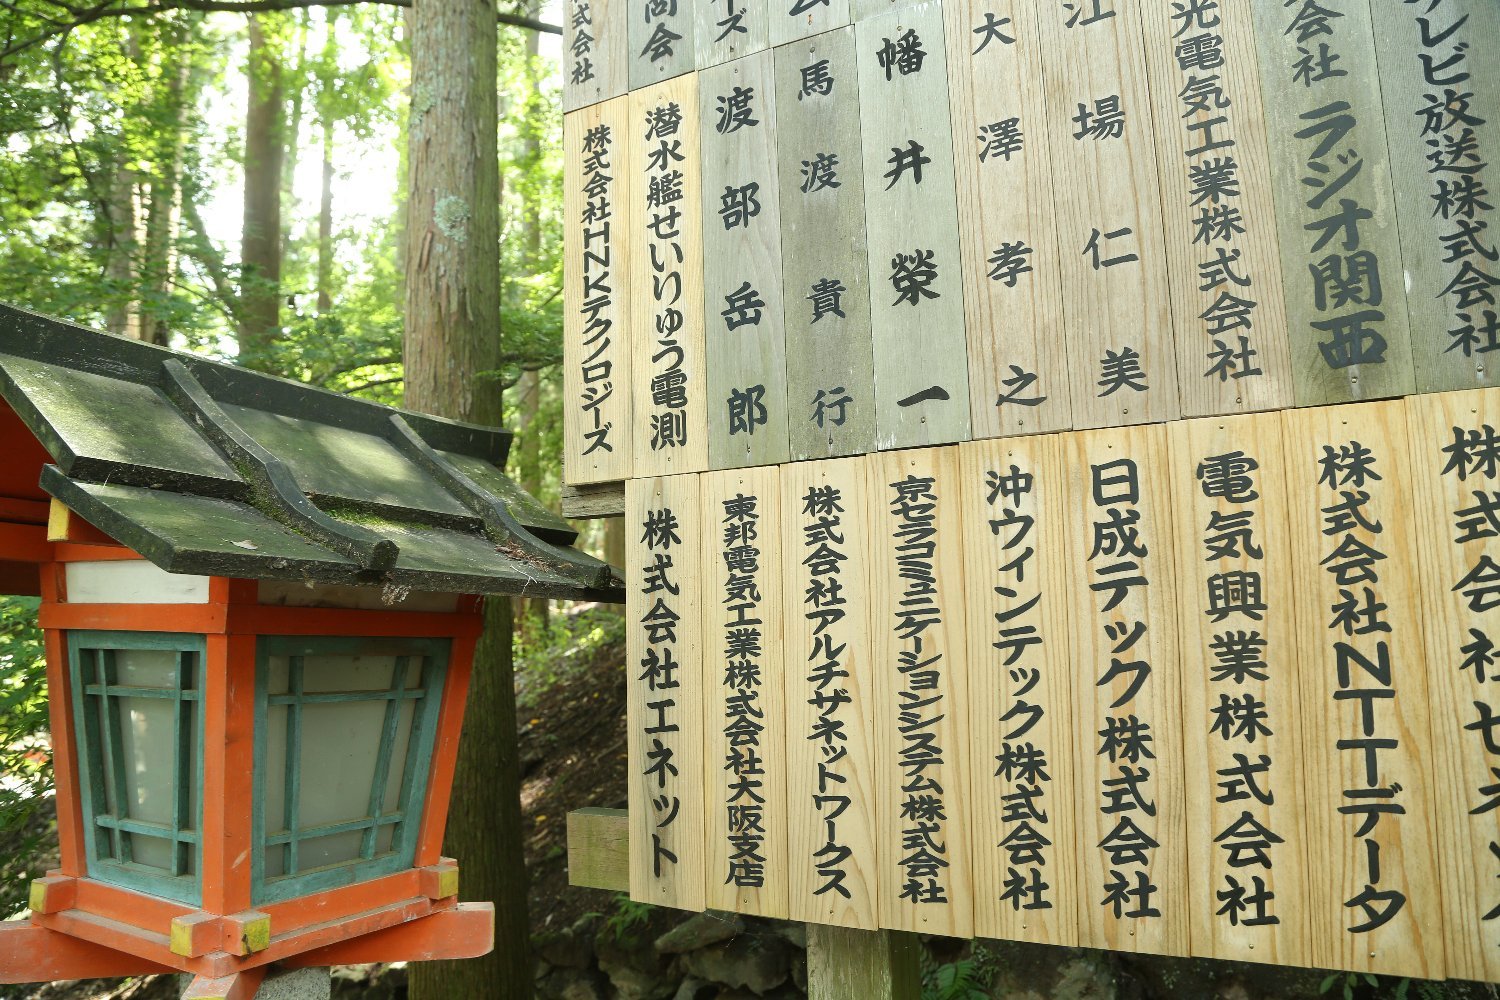 レビ放送株式会社
会社ラジオ関西
光電気工業株式会社
江場仁美
大澤孝之
幡井榮一
ーズ
商会
式会社
馬渡貴行
渡部岳郎
潜水艦せいりゅう電測
株式会社HNKテクノロジーズ
株式会社
株式会社NTTデータ
電気興業株式会社
日成テック株式会社
沖ウィンテック株式会社
京セラコミュニケーションシステム株式会社
株式会社アルチザネットワークス
東邦電気工業株式会社大阪支店
株式会社エネット